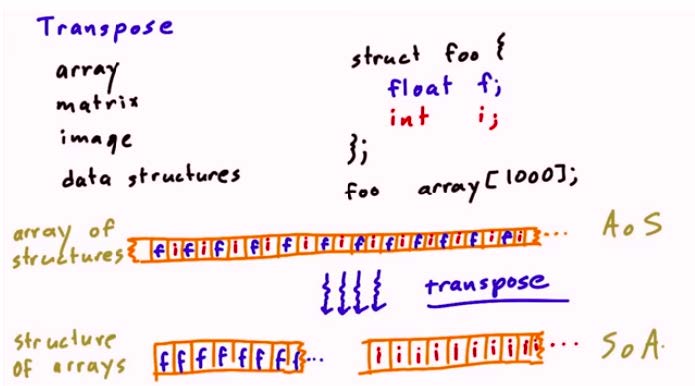 Transpose
array
matrix
image
data structures
struct foo {
float f;
int i;
};
foo array[1000];
array of
structures
f i f i f i f i f i f i f i f i f i f i f i f i ...
AoS
transpose
structure
of arrays
f f f f f f f f ...
i i i i i i i i i i ...
SoA